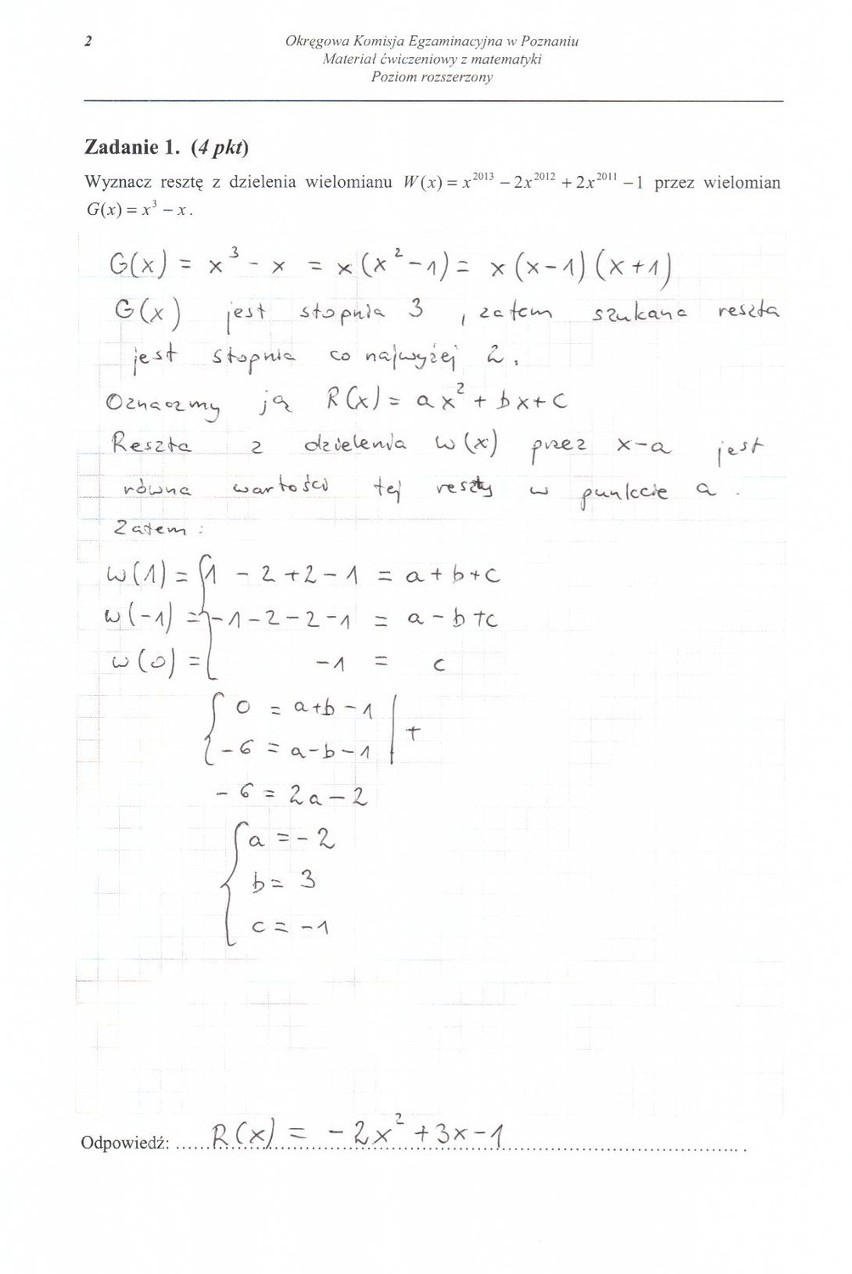 2
Okręgowa Komisja Egzaminacyjna w Poznaniu
Materiał ćwiczeniowy z matematyki
Poziom rozszerzony
Zadanie 1. (4 pkt)
Wyznacz resztę z dzielenia wielomianu W(x) = x²⁰¹³ − 2x²⁰¹² + 2x²⁰¹¹ − 1 przez wielomian
G(x) = x³ − x.
G(x) = x³ - x = x(x²-1) = x(x-1)(x+1)
G(x) jest stopnia 3, zatem szukana reszta
jest stopnia co najwyżej 2.
Oznaczmy ją R(x) = ax² + bx + c
Reszta z dzielenia W(x) przez x-a jest
równa wartości tej reszty w punkcie a.
Zatem:
W(1) = { 1 - 2 + 2 - 1 = a + b + c
W(-1) = { -1 - 2 - 2 - 1 = a - b + c
W(0) = { -1 = c
{ 0 = a+b-1 |
{ -6 = a-b-1 | +
-6 = 2a-2
{ a = -2
{ b = 3
{ c = -1
Odpowiedź: ..... R(x) = -2x² + 3x - 1